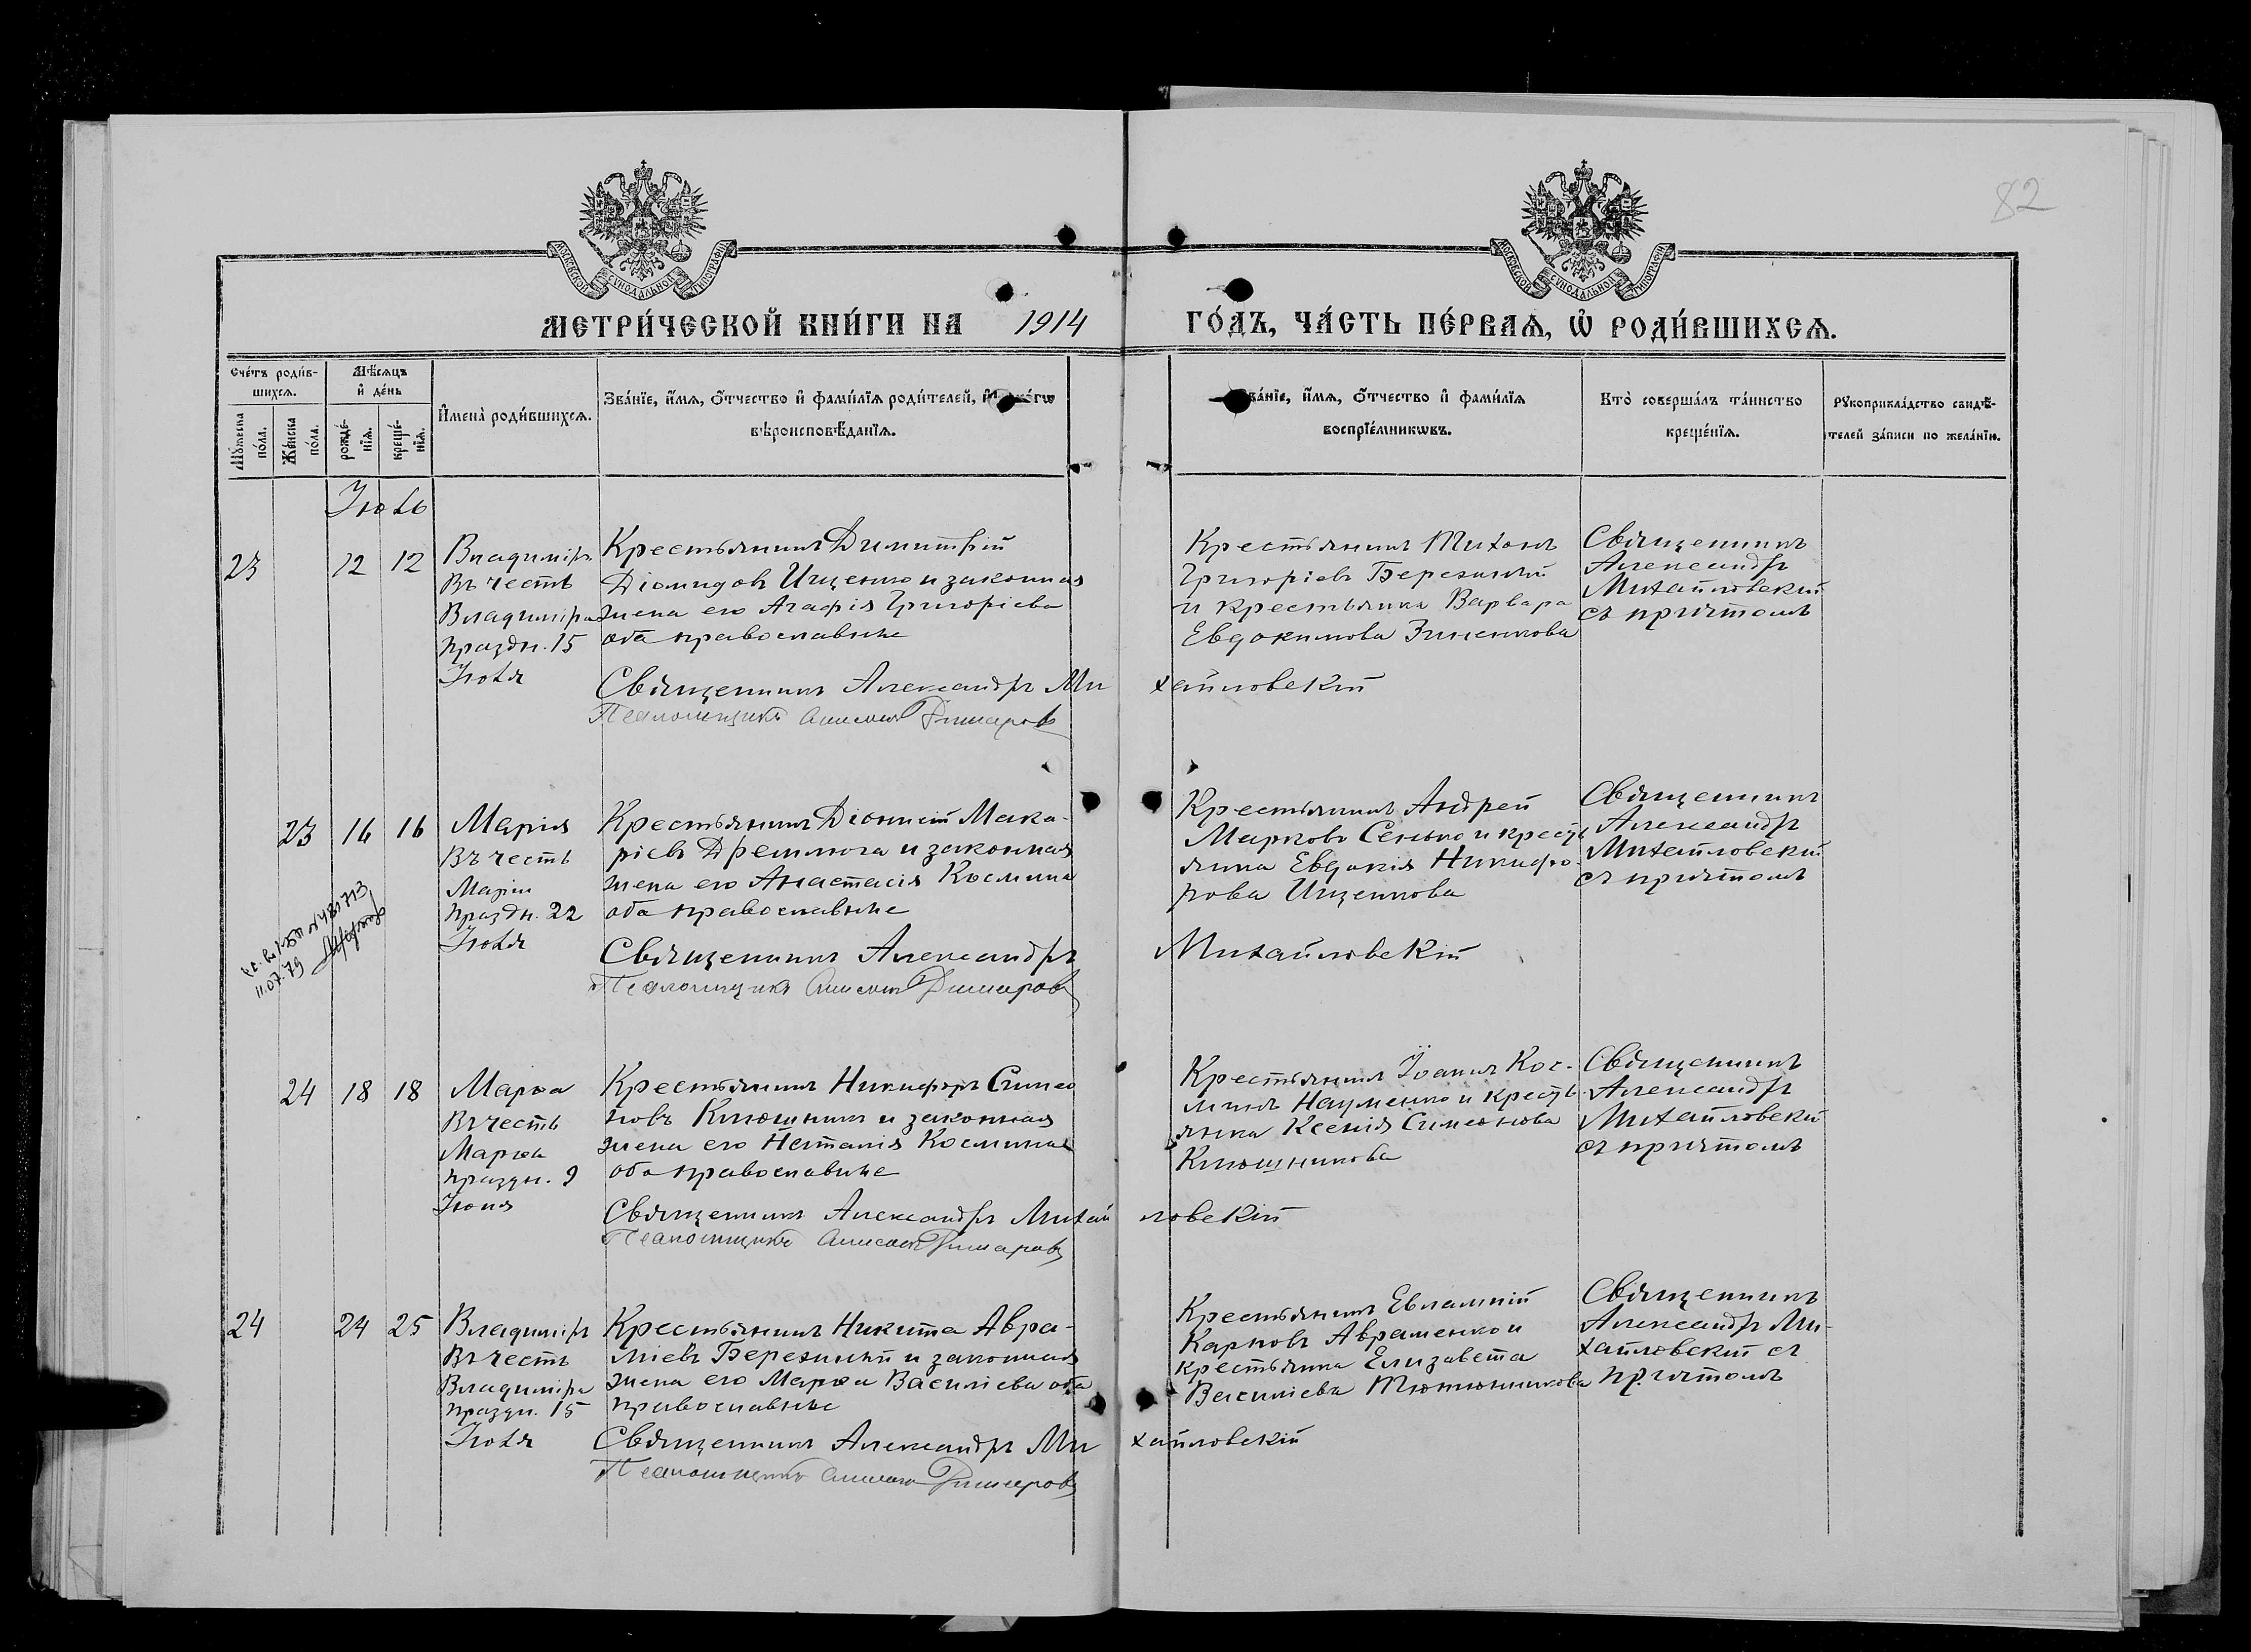 82
МОСКОВСКОЙ СѴНОДАЛЬНОЙ ТИПОГРАФІИ
МОСКОВСКОЙ СѴНОДАЛЬНОЙ ТИПОГРАФІИ
МЕТРИ́ЧЕСКОЙ КНИ́ГИ НА 1914 ГО́ДЪ, ЧА́СТЬ ПЕ́РВАѦ, Ѡ҆ РОДИ́ВШИХСѦ.
Сче́тъ роди́в-
шихсѧ.
Мѹ́жеска
по́ла.
Же́нска
по́ла.
Мѣ́сѧцъ
и҆ де́нь
рожде́-
нїѧ.
креще́-
нїѧ.
И҆мена̀ роди́вшихсѧ.
Зва́нїе, и҆́мѧ, ѻ҆́тчество и҆ фами́лїѧ роди́телей,
вѣроисповѣ́данїѧ.
ва́нїе, и҆́мѧ, ѻ҆́тчество и҆ фами́лїѧ
воспрїе́мникѡвъ.
Кто̀ соверша́лъ та́инство
креще́нїѧ.
Рѹкоприкла́дство свидѣ́-
телей за́писи по жела́нїю.
Июль
23 12 12
Владиміръ
Въ честь
Владиміра
праздн. 15
Июля
Крестьянинъ Димитрій
Діомидовъ Ищенко и законная
жена его Агафія Григоріева
оба православные
Священникъ Александръ Михайловскій
Псаломщикъ
Крестьянинъ Тихонъ
Григоріевъ Березкинъ
и крестьянка Варвара
Евдокимова Зиненкова
Священникъ
Александръ
Михайловскій
съ причтомъ
23 16 16
Марія
Въ честь
Маріи
праздн. 22
Июля
11.07.79
Крестьянинъ Діонисій Мака-
ріевъ Дремлюга и законная
жена его Анастасія Космина
оба православные
Священникъ Александръ Михайловскій
Псаломщикъ
Крестьянинъ Андрей
Марковъ Сенько и кресть
янка Евдокія Никифо-
рова Ищенкова
Священникъ
Александръ
Михайловскій
съ причтомъ
24 18 18
Марѳа
Въ честь
Марѳы
праздн. 9
Июня
Крестьянинъ Никифоръ Симео
новъ Клюшникъ и законная
жена его Наталія Космина
оба православные
Священникъ Александръ Михайловскій
Псаломщикъ
Крестьянинъ Іоаннъ Кос-
минъ Науменко и кресть
янка Ксенія Симеонова
Клюшникова
Священникъ
Александръ
Михайловскій
съ причтомъ
24 24 25
Владиміръ
Въ честь
Владиміра
праздн. 15
Июля
Крестьянинъ Никита Авра-
міевъ и законная
жена его Марѳа Василіева оба
православные
Священникъ Александръ Михайловскій
Псаломщикъ
Крестьянинъ Евлампій
Карповъ Авраменко и
крестьянка Елизавета
Василіева Тютюнникова
Священникъ
Александръ Ми-
хайловскій съ
причтомъ